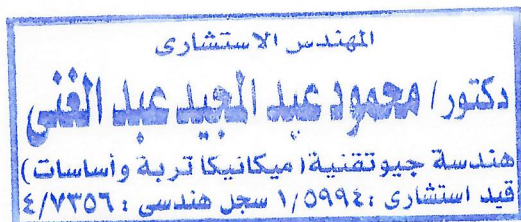 المهندس الاستشارى
دكتور/ محمود عبد المجيد عبد الغنى
هندسة جيوتقنية (ميكانيكا تربة وأساسات)
قيد استشارى : ١/٥٩٩٤ سجل هندسى : ٤/٧٣٥٦